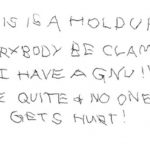 IS IS A HOLDU
RYBODY BE CLAM
I HAVE A GNU!
E QUITE & NO ONE
GETS HURT!